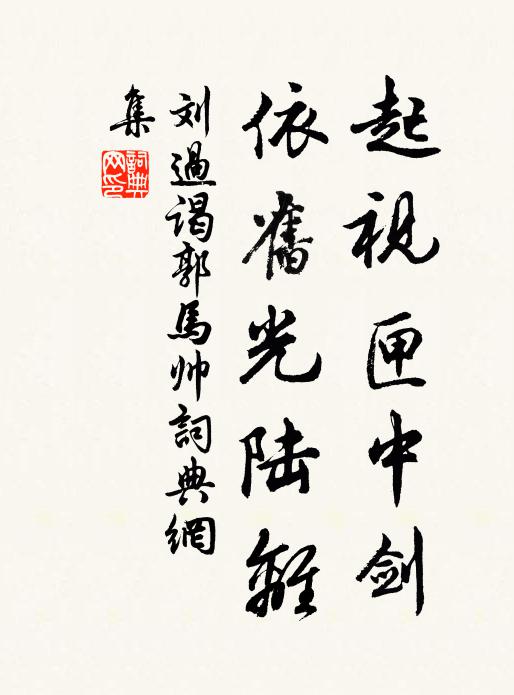 起視匣中劍
依舊光陆離
刘過谒郭馬帅詞典網
集
詞典网印